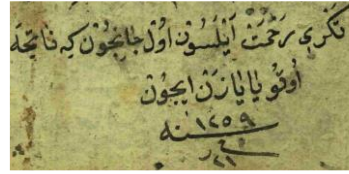 تكری رحمت ایلسون اول جانیچون كه فاتحه
اوقویا یازن ایچون
سنه ١٢٥٩